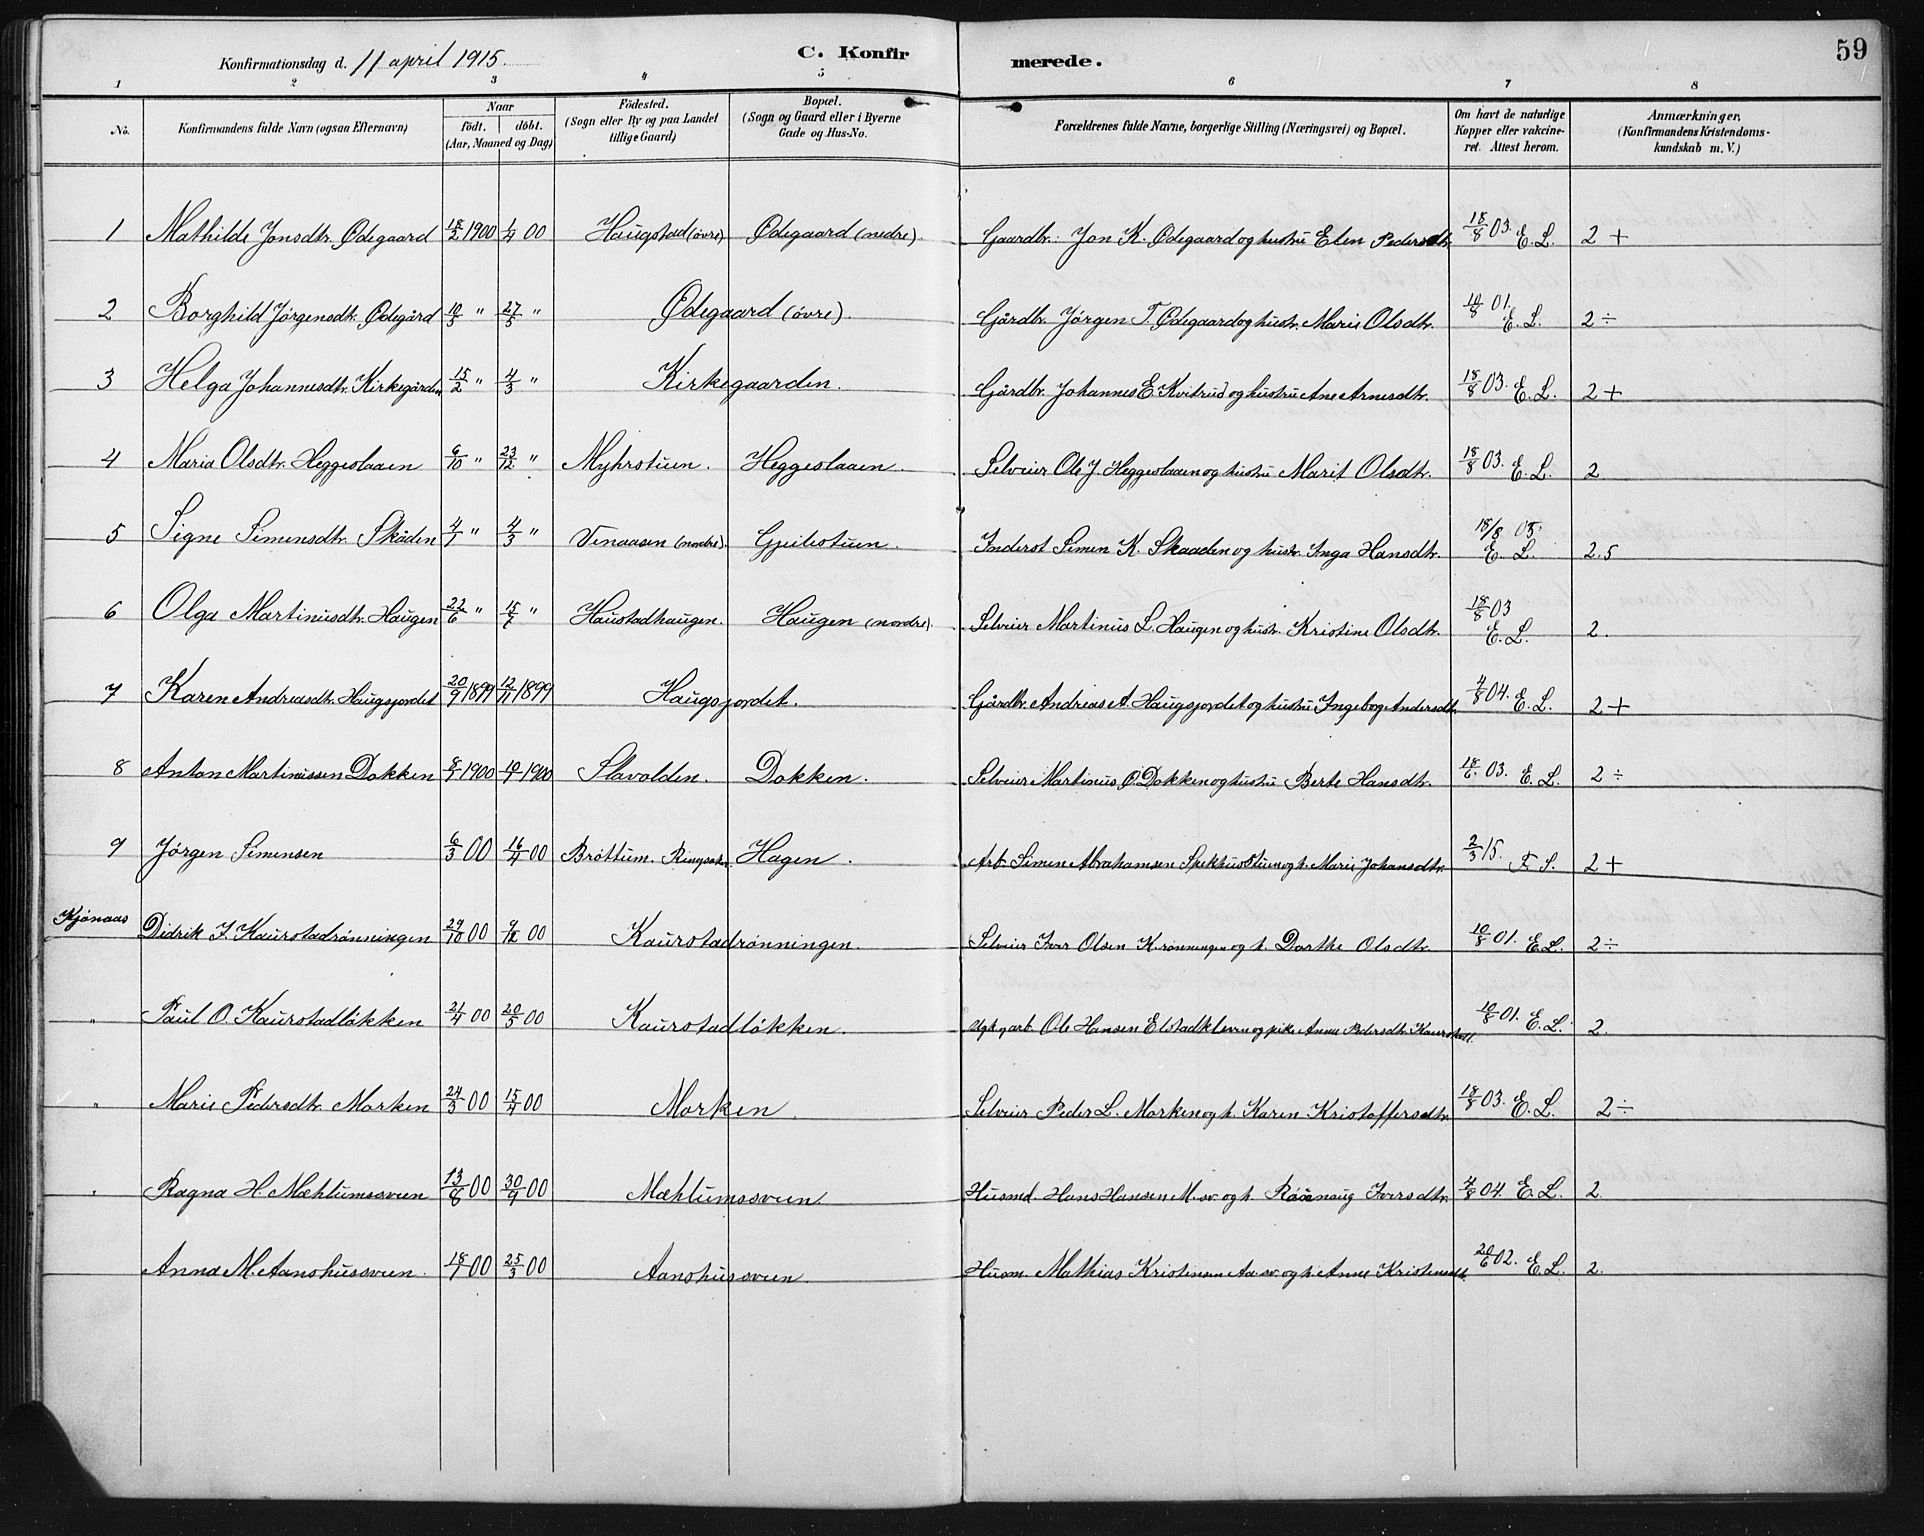 59
Konfirmationsdag d. 11 april 1915. C. Konfirmerede.
1 2 3 4 5 6 7 8
No. Konfirmandens fulde Navn (ogsaa Efternavn) Naar födt. döbt. (Aar, Maaned og Dag) Födested. (Sogn eller By og paa Landet tillige Gaard) Bopæl. (Sogn og Gaard eller i Byerne Gade og Hus-No. Forældrenes fulde Navne, borgerlige Stilling (Næringsvei) og Bopæl. Om havt de naturlige Kopper eller vakcineret. Attest herom. Anmærkninger, (Konfirmandens Kristendomskundskab m. V.)
1 Mathilde Jonsdtr. Ødegaard 18/2 1900 1/4 00 Haugstad (övre) Ødegaard (nedre). Gaardbr. Jon K. Ødegaard og hustru Elen Pedersdtr. 18/8 03. E. L. 2 +
2 Borghild Jörgensdtr. Ødegård 10/3 " 27/5 " Ødegaard (övre). Gårdbr. Jörgen T. Ødegaard og hustr. Marie Olsdtr. 10/8 01. E. L. 2 ÷
3 Helga Johannesdtr. Kirkegården 15/2 " 4/3 " Kirkegaarden. Gårdbr. Johannes E. Kvitrud og hustru Ane Arnesdtr. 18/8 03. E. L. 2 +
4 Maria Olsdtr. Heggeslaaen 6/10 " 23/12 " Myhrstuen. Heggeslaaen. Selveier Ole J. Heggeslaaen og hustru Marit Olsdtr. 18/8 03. E. L. 2
5 Signe Simensdtr. Skåden 4/1 " 4/3 " Venaasen (nordre). Gjeilestuen. Inderst Simen K. Skaaden og hustr. Inga Hansdtr. 18/8 03. E. L. 2.5
6 Olga Martinusdtr. Haugen 22/6 " 15/7 " Haustadhaugen. Haugen (nordre). Selveier Martinus L. Haugen og hustr. Kristine Olsdtr. 18/8 03 E. L. 2.
7 Karen Andreasdtr. Haugsjordet 20/9 1899 12/11 1899 Haugsjordet. Gårdbr. Andreas A. Haugsjordet og hustru Ingeborg Andersdtr. 4/8 04. E. L. 2 +
8 Anton Martinussen Dokken 8/7 1900 19/7 1900 Slavolden. Dokken. Selveier Martinus O. Dokken og hustru Berte Hansdtr. 18/6 03. E. L. 2 ÷
9 Jörgen Simensen 6/3 00 16/4 00 Bröttum. Ringsaker Hagen. Arb. Simen Abrahamsen Spekhusstuen og h. Marie Johansdtr. 2/3 15. F. S. 2 +
Kjönaas Didrik I. Kaurstadrönningen 29/10 00 9/12 00 Kaurstadrönningen. Selveier Iver Olsen K.rönningen og h. Dorthe Olsdtr. 10/8 01. E. L. 2 ÷
" Paul O. Kaurstadlökken 21/4 00 20/5 00 Kaurstadlökken. Ugk. g.arb. Ole Hansen Elstadkleven og pike Anna Pedersdtr. Kaurstadl. 10/8 01. E. L. 2.
" Marie Pedersdtr. Morken 24/3 00 15/4 00 Morken. Selveier Peder L. Morken og h. Karen Kristoffersdtr. 18/8 03. E. L. 2 ÷
" Ragna H. Mæhlumssveen 13/8 00 30/9 00 Mæhlumssveen. Husmd. Hans Hansen M.sv. og h. Rönnaug Iversdtr. 4/8 04. E. L. 2.
Anna M. Aanshussveen. 18/1 00 25/3 00 Aanshussveen. Husm. Mathias Kristensen Aa.sv. og h. Anne Kristensdt. 20/6 02. E. L. 2.